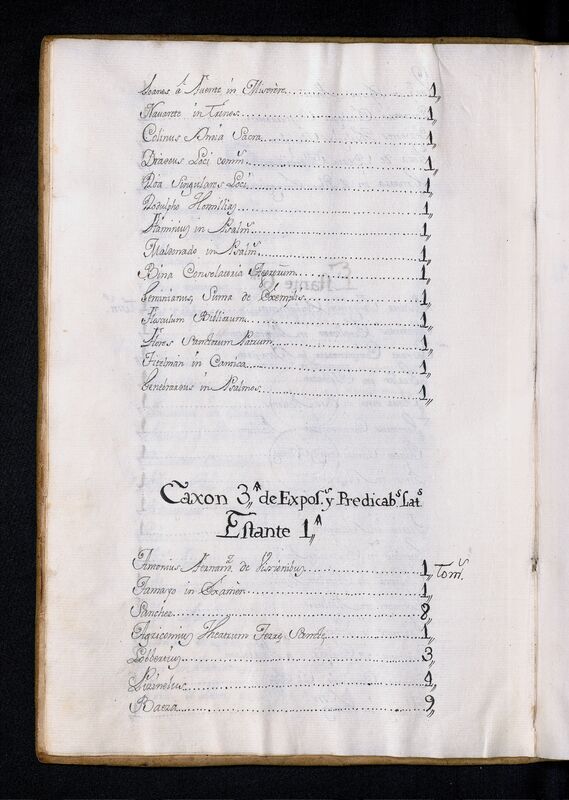 Loanes á Fuente in Miserere 1,,
Navarete in Trenos 1,,
Colinus Amia Sacra 1,,
Draeous Loci comm.s 1,,
Roa Singulares Loci 1,,
Rodulpho Homilias 1,,
Flaminius in Psalm.s 1,,
Maldonado in Psalm.s 1,,
Bina Conselataria 1,,
Geminianus, Suma de Exemplis 1,,
Flosculum Bibliarum 1,,
Flores Sanctorum Patrum 1,,
Titelman in Cantica 1,,
Genebrardus in Psalmos 1,,
Caxon 3,,ᴬ de Expos.s y Predicab.s Lat.s
Estante 1,,ᴬ
Antonius Hernan.z de Visionibus 1,, Tom.s
Tamayo in Examen 1,,
Sanchez 8
Agricomius Theatrum Terre Sancte 1,,
Lobbertius 3
4
Baeza 9,,